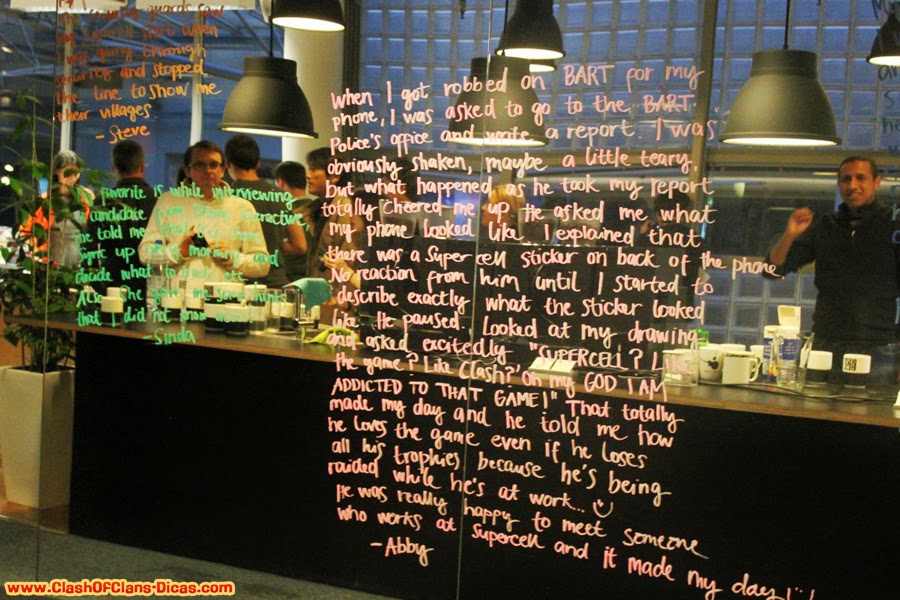 security guards saw
start when
I was going through
security and stopped
the line to show me
their villages.
- Steve
favorite is while interviewing
a candidate from
he told me
sync up every morning and
decide what to
Also he gave me some hints
that I did not know
- Sinda
When I got robbed on BART for my
phone, I was asked to go to the BART
Police's office and write a report. I was
obviously shaken, maybe a little teary,
but what happened as he took my report
totally cheered me up. He asked me what
my phone looked like. I explained that
there was a Supercell sticker on back of the phone.
No reaction from him until I started to
describe exactly what the sticker looked
like. He paused. Looked at my drawing
and asked excitedly "SUPERCELL? Like
the game? Like Clash?" Oh my GOD I AM
ADDICTED TO THAT GAME!" That totally
made my day and he told me how
he loves the game even if he loses
all his trophies because he's being
raided while he's at work...
He was really happy to meet someone
who works at Supercell and it made my day!"!
- Abby
www.ClashOfClans-Dicas.com